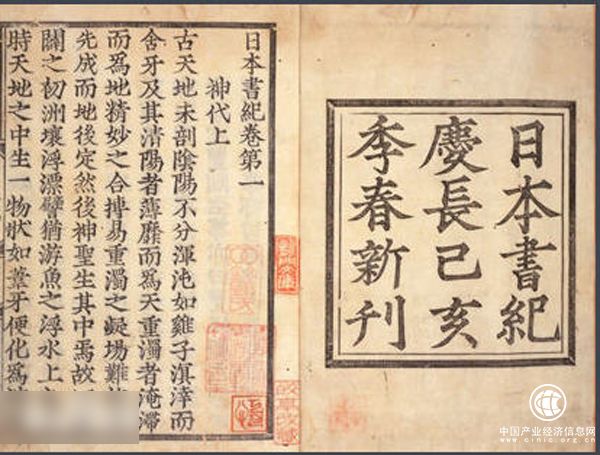 日本書紀
慶長己亥
季春新刊
日本書紀卷第一
神代上
古天地未剖陰陽不分渾沌如雞子溟涬而
含牙及其清陽者薄靡而爲天重濁者淹滯
而爲地精妙之合搏易重濁之凝場難
先成而地後定然後神聖生其中焉故
闢之初洲壤浮漂譬猶游魚之浮水上
時天地之中生一物狀如葦牙便化爲
中国产业经济信息网
www.cinic.org.cn